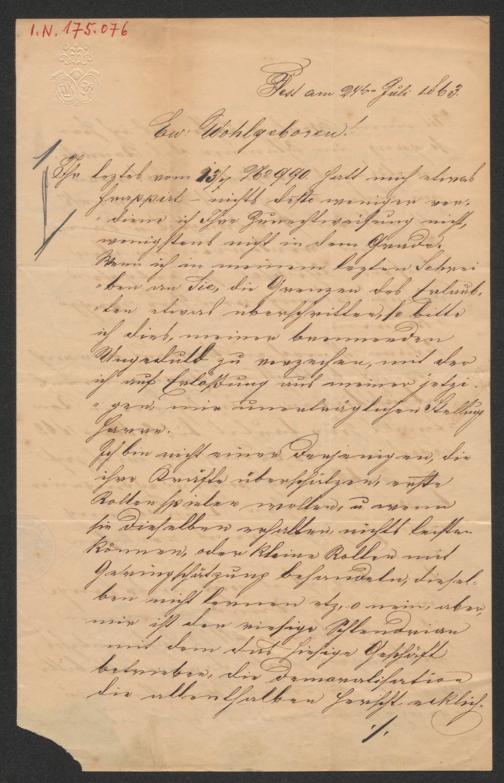 I.N. 175.076
Pest am 24te Juli 1863.
Ew. Wohlgeboren!
Ihr leztes vom 13/7 No 990 hatt mich etwas
frappirt – nichts desto weniger ver-
diene ich Ihre Zurechtweisung nicht,
wenigstens nicht in dem Grade.
Wenn ich in meinem lezten Schrei
ben an Sie, die Grenzen des Erlaub-
ten etwas überschritten, so bitte
ich dies, meiner brennenden
Ungeduld zu verzeihen, mit der
ich auf Erlösung aus meiner jetzi
gen, mir unerträglichen Stellung
harre.
Ich bin nicht einer Derjenigen, die
ihre Kräfte überschätzen, erste
Rollen spielen wollen, u wenn
sie dieselben erhalten, nichts leisten
können, oder kleine Rollen mit
Geringschätzung behandeln, diesel-
ben nicht lernen etz, o nein, aber,
mir ist der riesige Schlendrian
mit dem das hiesige Geschäft
betrieben, die Demoralisation
die allenthalben herscht ecklich.
./.